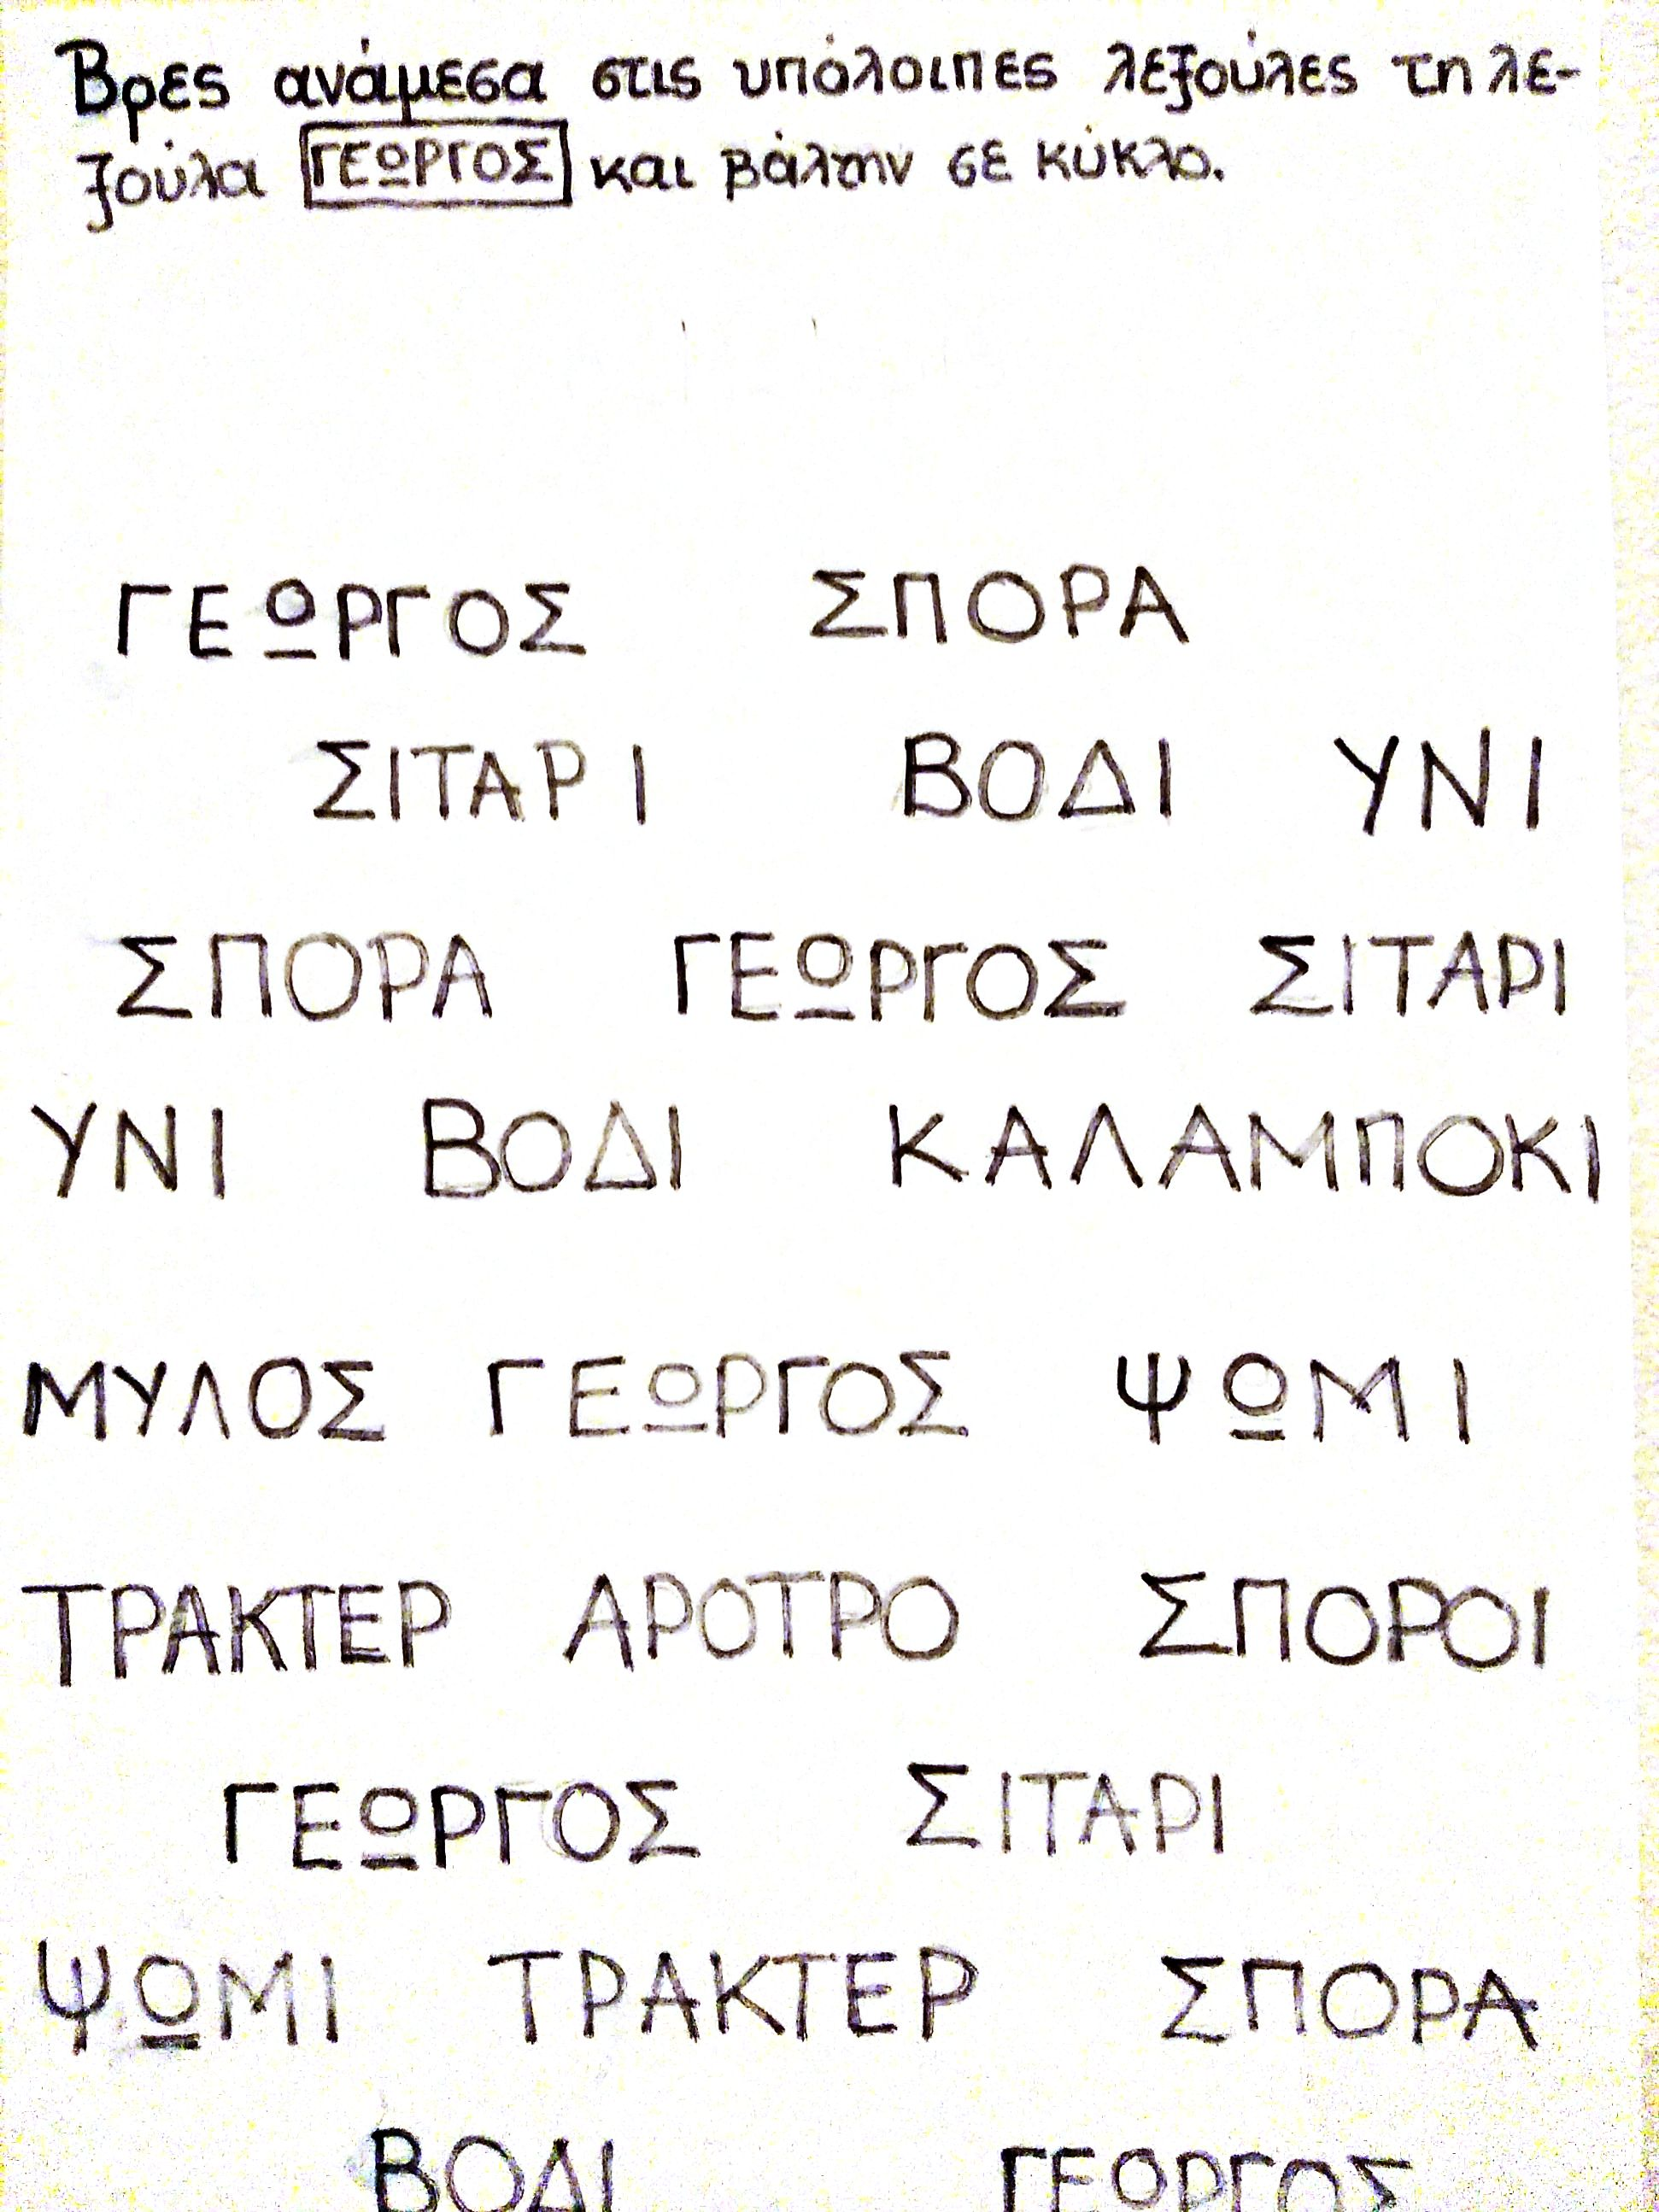 Βρες ανάμεσα στις υπόλοιπες λεξούλες τη λε-
ξούλα ΓΕΩΡΓΟΣ και βάλτην σε κύκλο.
ΓΕΩΡΓΟΣ ΣΠΟΡΑ
ΣΙΤΑΡΙ ΒΟΔΙ ΥΝΙ
ΣΠΟΡΑ ΓΕΩΡΓΟΣ ΣΙΤΑΡΙ
ΥΝΙ ΒΟΔΙ ΚΑΛΑΜΠΟΚΙ
ΜΥΛΟΣ ΓΕΩΡΓΟΣ ΨΩΜΙ
ΤΡΑΚΤΕΡ ΑΡΟΤΡΟ ΣΠΟΡΟΙ
ΓΕΩΡΓΟΣ ΣΙΤΑΡΙ
ΨΩΜΙ ΤΡΑΚΤΕΡ ΣΠΟΡΑ
ΒΟΔΙ ΓΕΩΡΓΟΣ